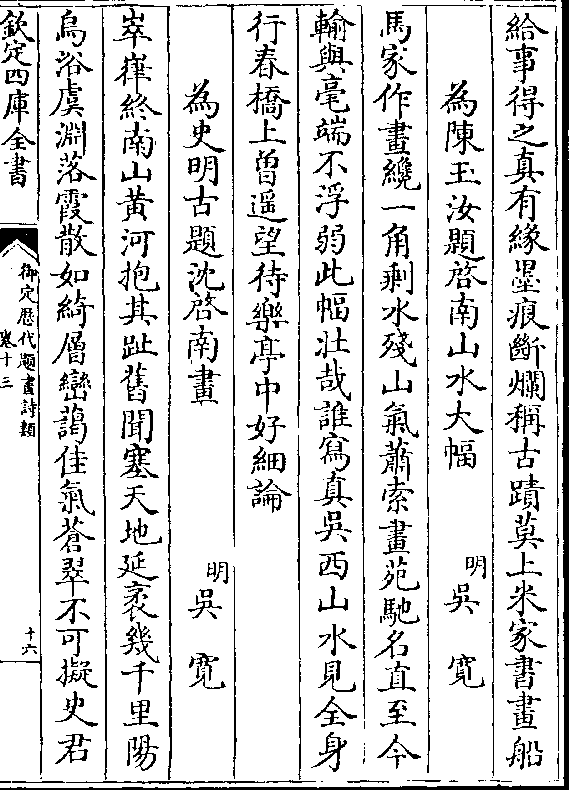 給事得之真有緣墨痕斷爛稱古蹟莫上米家書畫船
為陳玉汝題啓南山水大幅
明吳寛
馬家作畫纔一角剰水殘山氣蕭索畫苑馳名直至今
輸與毫端不浮弱此幅壯哉誰寫真吳西山水見全身
行春橋上曾遥望待樂亭中好細論
為史明古題沈啓南畫
明吳寛
崒嵂終南山黄河抱其趾舊聞塞天地延袤幾千里陽
烏浴虞淵落霞散如綺層巒藹佳氣蒼翠不可擬史君
欽定四庫全書
御定歴代題畫詩類
卷十三
十六